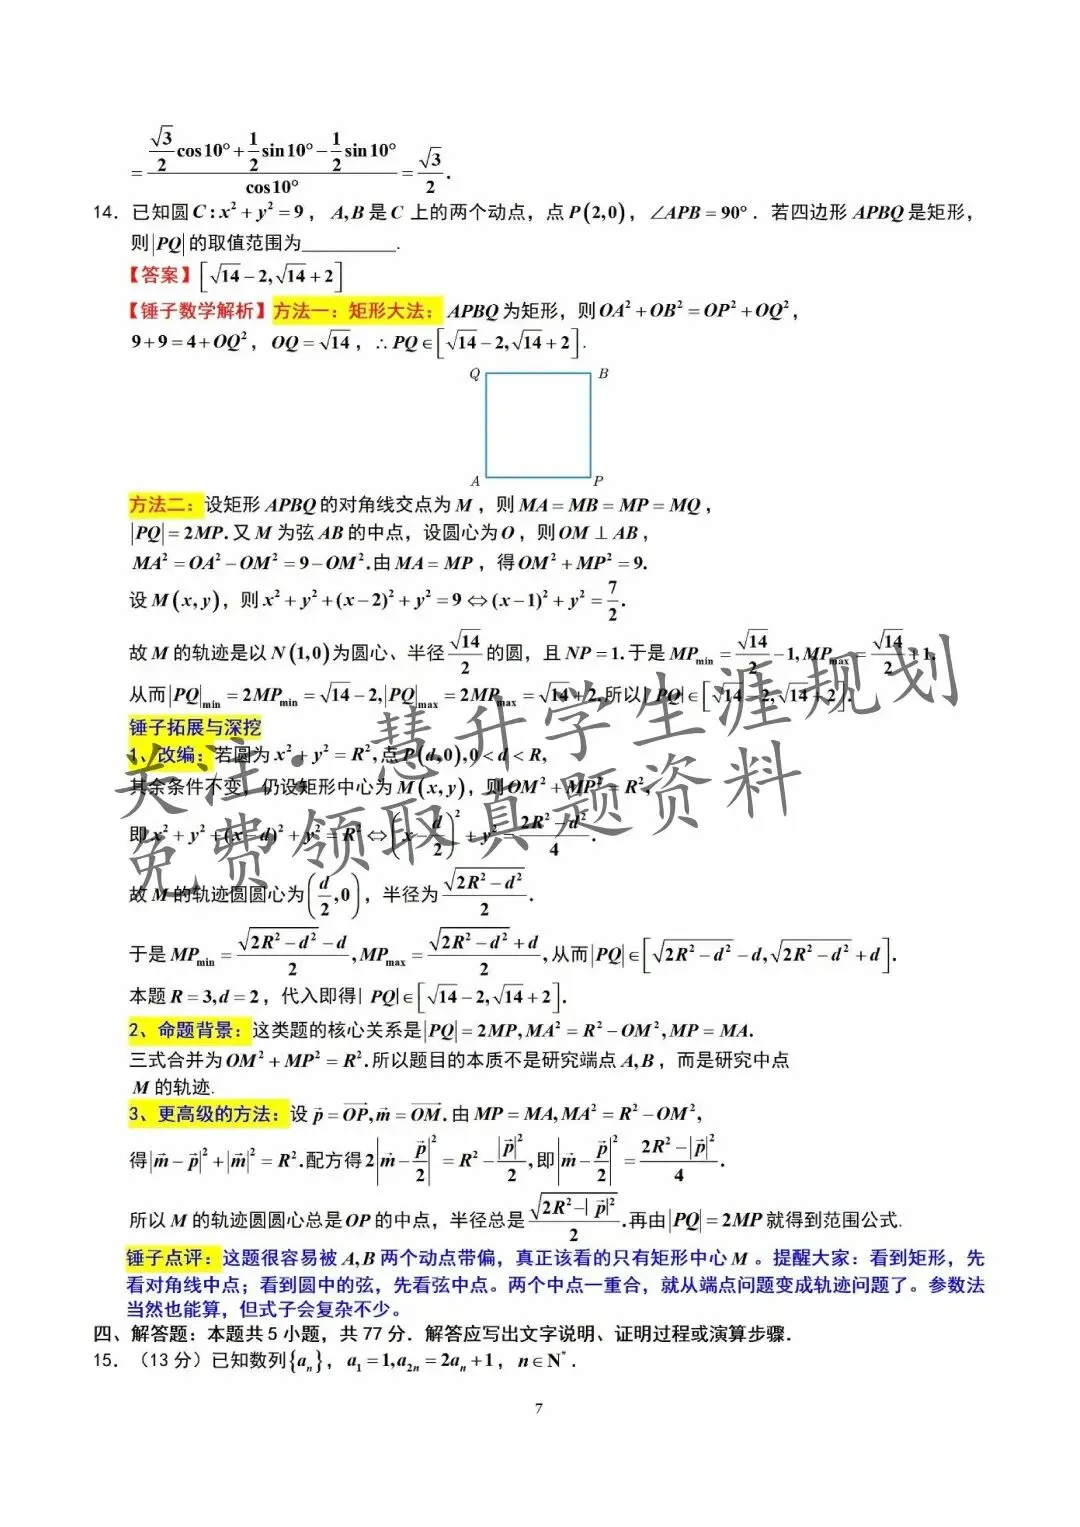 = (√3/2 cos10° + 1/2 sin10° − 1/2 sin10°)/cos10° = √3/2.
14. 已知圆 C : x² + y² = 9，A, B 是 C 上的两个动点，点 P(2,0)，∠APB = 90°．若四边形 APBQ 是矩形，
则 |PQ| 的取值范围为________.
【答案】[√14 − 2, √14 + 2]
【锤子数学解析】方法一：矩形大法：APBQ 为矩形，则 OA² + OB² = OP² + OQ²，
9 + 9 = 4 + OQ²，OQ = √14，∴ PQ ∈ [√14 − 2, √14 + 2].
Q B
A P
方法二：设矩形 APBQ 的对角线交点为 M，则 MA = MB = MP = MQ，
|PQ| = 2MP. 又 M 为弦 AB 的中点，设圆心为 O，则 OM ⊥ AB，
MA² = OA² − OM² = 9 − OM². 由 MA = MP，得 OM² + MP² = 9.
设 M(x, y)，则 x² + y² + (x − 2)² + y² = 9 ⇔ (x − 1)² + y² = 7/2.
故 M 的轨迹是以 N(1,0) 为圆心、半径 √14/2 的圆，且 NP = 1. 于是 MPmin = √14/2 − 1, MPmax = √14/2 + 1,
从而 |PQ|min = 2MPmin = √14 − 2, |PQ|max = 2MPmax = √14 + 2, 所以 |PQ| ∈ [√14 − 2, √14 + 2].
锤子拓展与深挖
1、改编：若圆为 x² + y² = R², 点 P(d,0), 0 < d < R,
其余条件不变，仍设矩形中心为 M(x, y)，则 OM² + MP² = R²,
即 x² + y² + (x − d)² + y² = R² ⇔ (x − d/2)² + y² = (2R² − d²)/4.
故 M 的轨迹圆圆心为 (d/2, 0)，半径为 √(2R² − d²)/2.
于是 MPmin = (√(2R² − d²) − d)/2, MPmax = (√(2R² − d²) + d)/2, 从而 |PQ| ∈ [√(2R² − d²) − d, √(2R² − d²) + d].
本题 R = 3, d = 2，代入即得| PQ| ∈ [√14 − 2, √14 + 2].
2、命题背景：这类题的核心关系是 |PQ| = 2MP, MA² = R² − OM², MP = MA.
三式合并为 OM² + MP² = R². 所以题目的本质不是研究端点 A, B，而是研究中点
M 的轨迹.
3、更高级的方法：设 p⃗ = OP⃗, m⃗ = OM⃗. 由 MP = MA, MA² = R² − OM²,
得 |m⃗ − p⃗|² + |m⃗|² = R². 配方得 2|m⃗ − p⃗/2|² = R² − |p⃗|²/2, 即 |m⃗ − p⃗/2|² = (2R² − |p⃗|²)/4.
所以 M 的轨迹圆圆心总是 OP 的中点，半径总是 √(2R² − |p⃗|²)/2. 再由 |PQ| = 2MP 就得到范围公式.
锤子点评：这题很容易被 A, B 两个动点带偏，真正该看的只有矩形中心 M 。提醒大家：看到矩形，先
看对角线中点；看到圆中的弦，先看弦中点。两个中点一重合，就从端点问题变成轨迹问题了。参数法
当然也能算，但式子会复杂不少。
四、解答题：本题共 5 小题，共 77 分．解答应写出文字说明、证明过程或演算步骤．
15. （13 分）已知数列 {aₙ}，a₁ = 1, a₂ₙ = 2aₙ + 1，n ∈ N*．
7
关注：慧升学生涯规划
免费领取真题资料